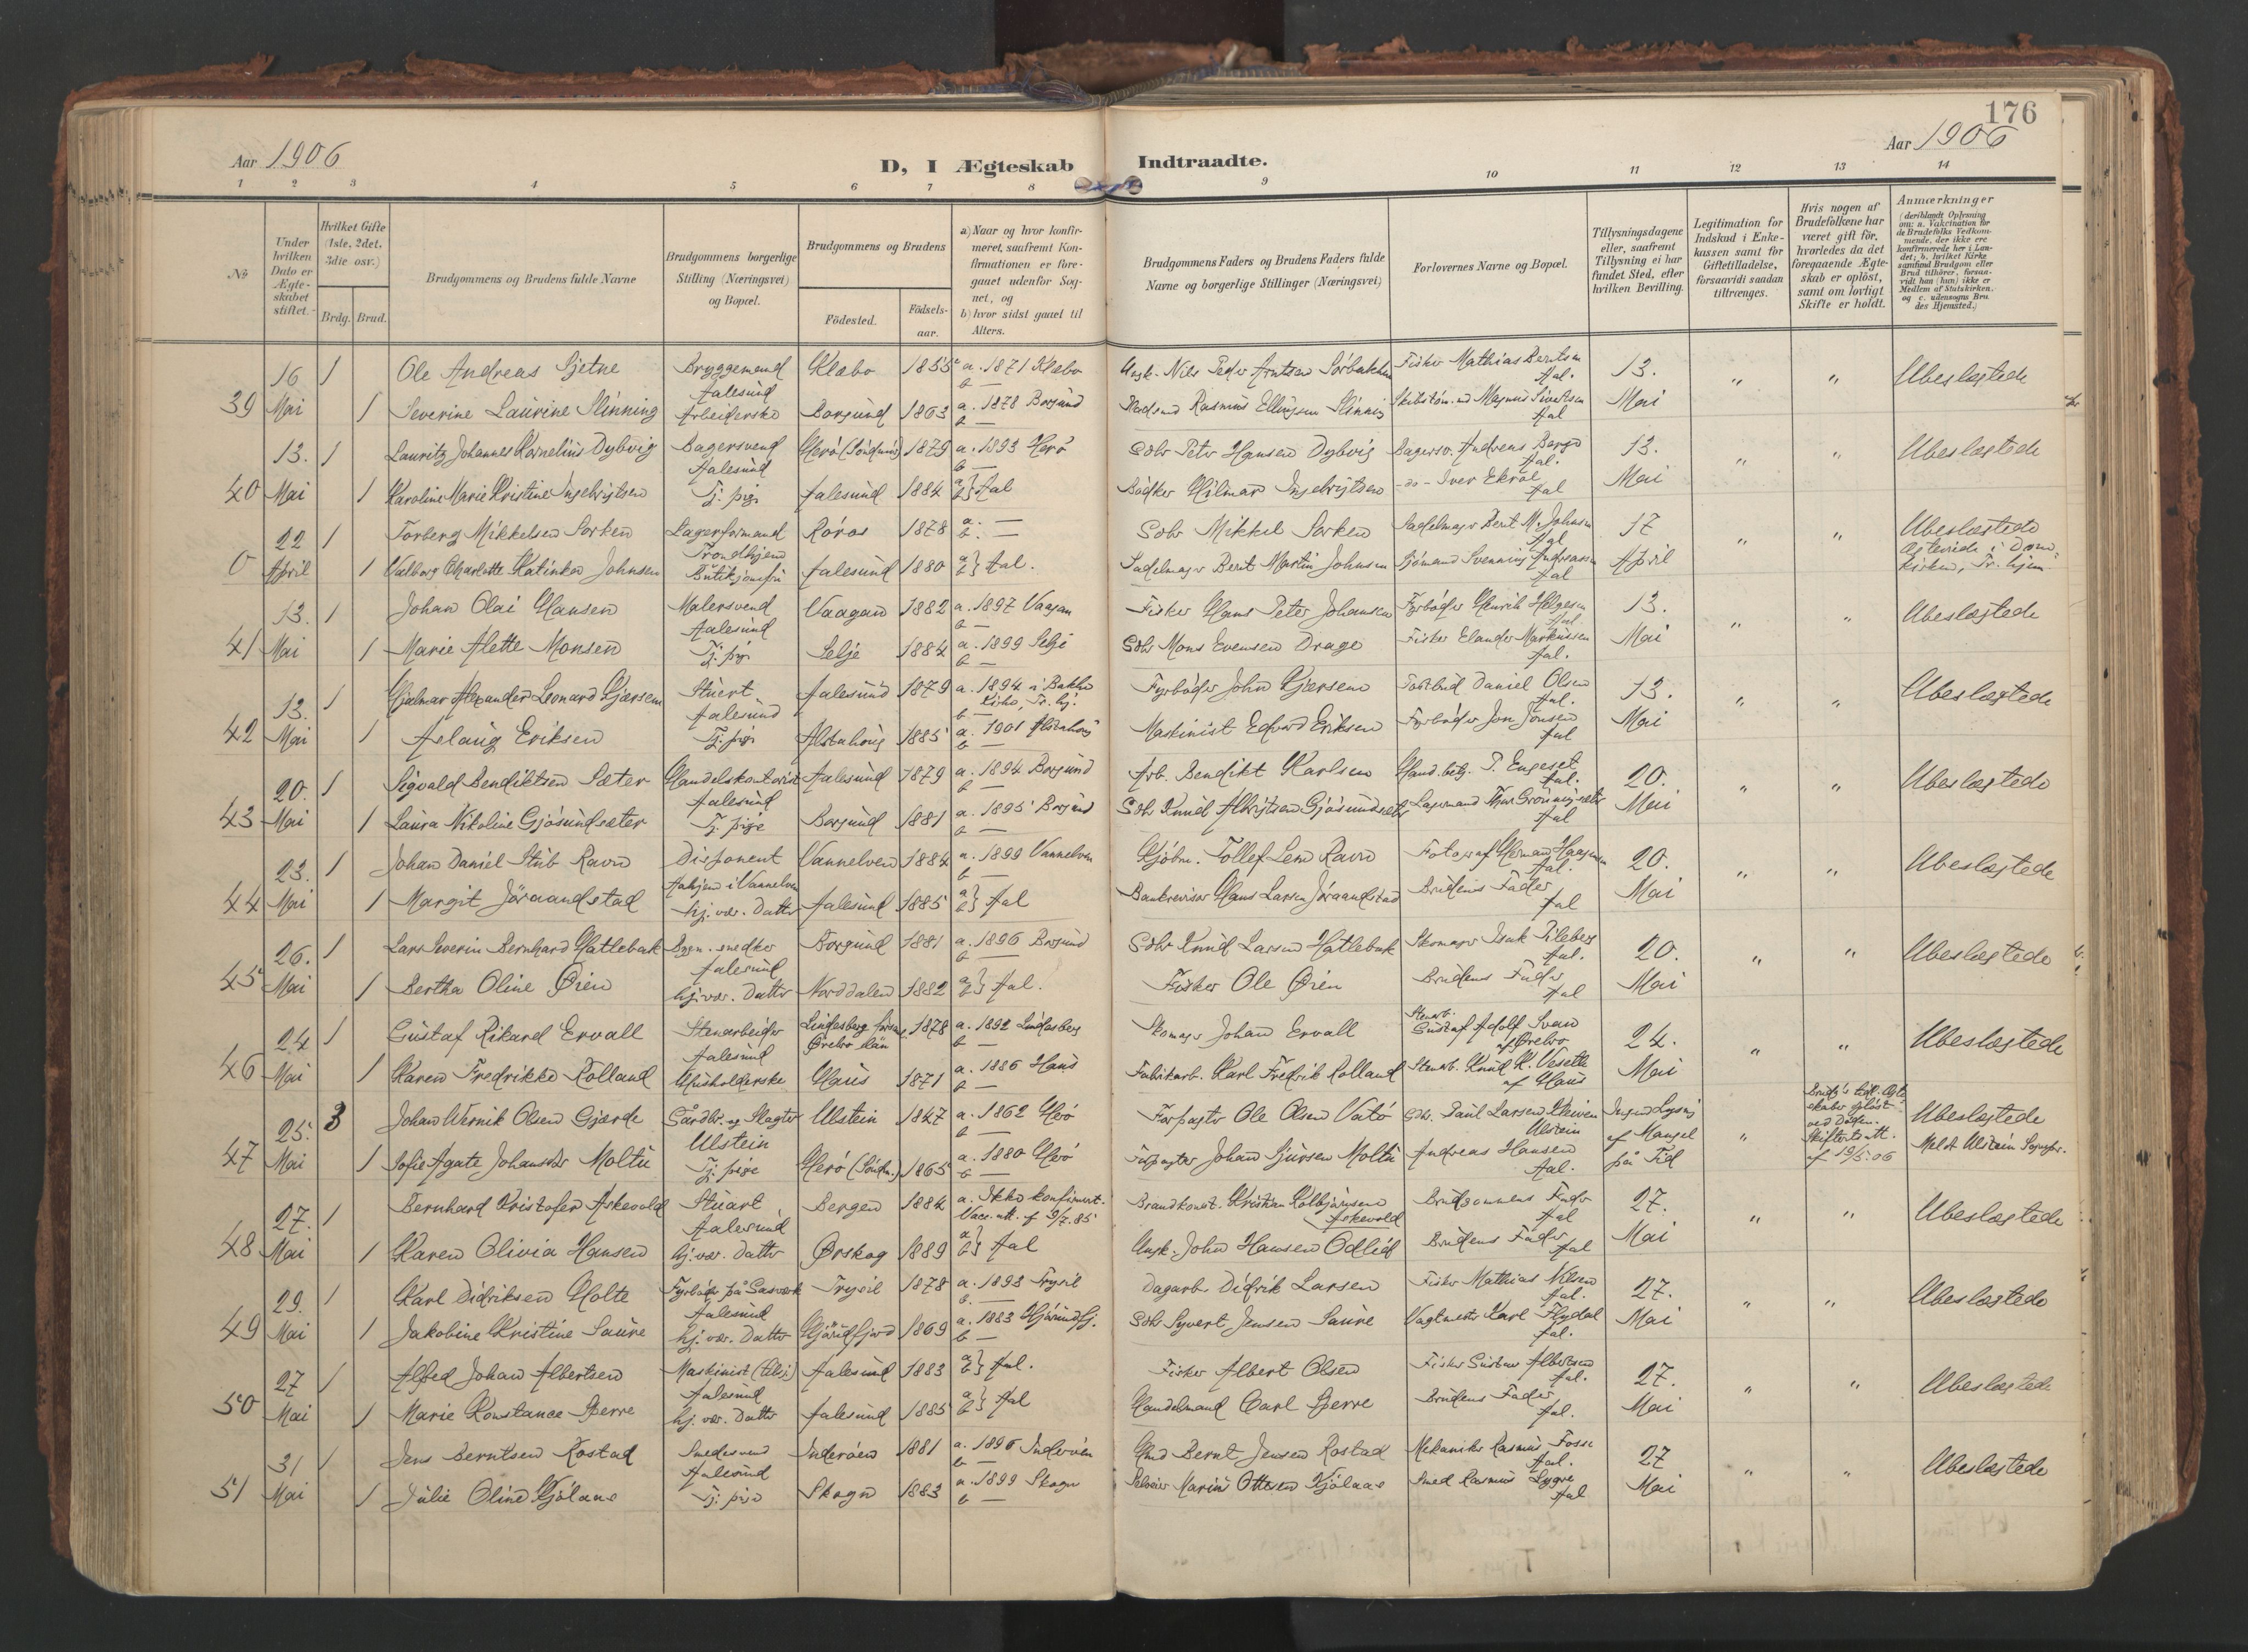 176
Aar 1906
D, I Ægteskab Indtraadte.
Aar 1906
1 2 3 4 5 6 7 8 9 10 11 12 13 14
No
Under hvilken Dato er Ægteskabet stiftet.
Hvilket Gifte (1ste, 2det, 3die osv.)
Brdg. Brud.
Brudgommens og Brudens fulde Navne
Brudgommens borgerlige Stilling (Næringsvei) og Bopæl.
Brudgommens og Brudens
Fødested.
Fødselsaar.
a) Naar og hvor konfirmeret, saafremt Konfirmationen er foregaaet udenfor Sognet, og
b) hvor sidst gaaet til Alters.
Brudgommens Faders og Brudens Faders fulde Navne og borgerlige Stillinger (Næringsvei)
Forlovernes Navne og Bopæl.
Tillysningsdagene eller, saafremt Tillysning ei har fundet Sted, efter hvilken Bevilling.
Legitimation for Indskud i Enkekassen samt for Giftetilladelse, forsaavidt saadan tiltrænges.
Hvis nogen af Brudefolkene har været gift før, hvorledes da det foregaaende Ægteskab er opløst, samt om lovligt Skifte er holdt.
Anmærkninger (deriblandt Oplysning om: a. Vakcination for de Brudefolks Vedkommende, der ikke ere konfirmerede her i Landet; b. hvilket Kirkesamfund Brudgom eller Brud tilhører, forsaavidt han (hun) ikke er Medlem af Statskirken. og c. udensogns Brudes Hjemsted.)
16 1 Ole Andreas Sjetne Bryggemand Klæbo 1855 a. 1871 Klæbo Nils Peder Arntsen Fisker Mathias Berntsen 13. " " Ubeslægtede
Aalesund b — Aal.
39 Mai 1 Severine Laurine Slinning Arbeiderske Borgund 1863 a. 1878 Borgund Rasmus Ellingsen Slinning Magnus Sivertsen Mai
b — Aal
13. 1 Lauritz Johannes Kornelius Dybvig Bagersvend Herö (Söndmör) 1879 a. 1893 Herö Gdbr Peter Hansen Dybvig Bagersv. Andreas Berge 13. " " Ubeslægtede
Aalesund b — Aal.
40 Mai 1 Karoline Marie Kristine Ingebrigtsen Tj. pige Aalesund 1884 a b } Aal Bödker Hilmar Ingebrigtsen -do- Iver Ekrol Mai
Aal
22 1 Torberg Mikkelsen Sorken Lagerformand Röros 1878 a. — Gdbr Mikkel Sorken Sadelmager Bernt M. Johnsen 17 " " Ubeslægtede
Trondhjem b. — Aal
0 April 1 Valborg Charlotte Katinka Johnsen Butikjomfru Aalesund 1880 a b } Aal. Sadelmager Bernt Martin Johnsen Sjömand Svenning Andreassen April Ægteviede i Domkirken, Tr.hjem
Aal
13. 1 Johan Olai Hansen Malersvend Vaagan 1882 a. 1897 Vaagan Fisker Hans Peter Johansen Fyrböder Henrik Helgesen 13. " " Ubeslægtede
Aalesund b — Aal
41 Mai 1 Marie Alette Monsen Tj. pige Selje 1884 a. 1899 Selje Gdbr Mons Evensen Drage Fisker Elander Markussen Mai
b — Aal.
13. 1 Hjalmar Alexander Leonard Gjærsem Stuert Aalesund 1879 a. 1894 i Bakke Kirke, Tr.hj. Fyrböder John Gjærsem Daniel Olsen 13. " " Ubeslægtede
Aalesund b — Aal.
42 Mai 1 Aslaug Eriksen Tj. pige Alstahoug 1885 a. 1901 Alstahoug Maskinist Edvard Eriksen Fyrböder Jon Jonsen Mai
b — Aal
20. 1 Sigvald Bendiktsen Sæter Handelskontorist Aalesund 1879 a. 1894 Borgund Arb. Bendikt Karlsen Hand.betj. P. Engeset 20. " " Ubeslægtede
Aalesund b — Aal.
43 Mai 1 Laura Nikoline Gjösundsæter Tj. pige Borgund 1881 a. 1895 Borgund Gdbr Knud Albrigtsen Gjösundsæter Lagermand Thor Grönningsæter Mai
b — Aal
23. 1 Johan Daniel Stub Ravn Disponent Vannelven 1884 a. 1899 Vannelven Kjöbm. Tollef Lem Ravn Fotograf Herman Haagensen 20. " " Ubeslægtede
Aahjem i Vannelven b — Aal.
44 Mai 1 Margit Jöraandstad hj.vær. Datter Aalesund 1885 a b } Aal Bankrevisor Hans Larsen Jöraandstad Brudens Fader Mai
Aal
26. 1 Lars Severin Bernhard Hatlebak Bygn.snedker Borgund 1881 a. 1896 Borgund Gdbr Knud Larsen Hatlebak Skomager Isak Pileberg 20. " " Ubeslægtede
Aalesund b — Aal.
45 Mai 1 Bertha Oline Øien hj.vær. Datter Norddalen 1882 a b } Aal. Fisker Ole Øien Brudens Fader Mai
Aal
24 1 Gustaf Rikard Ervall Stenarbeider Lindesberg Örebro län 1878 a. 1892 Lindesberg Skomager Johan Ervall Stenarb. Gustaf Adolf Svan af Örebro 24. " " Ubeslægtede
Aalesund b —
46 Mai 1 Karen Fredrikke Rolland Husholderske Haus 1871 a. 1886 Haus Fabrikarb. Karl Fredrik Rolland Stenarb. Knud K. Vesetli af Haus Mai
b —
25. 3 Johan Vernik Olsen Gjerde Gårdbr. og Slagter Ulstein 1847 a. 1862 Herö Forpagter Ole Olsen Vatö Gdbr. Paul Larsen Kleiven Ingen Lysning " Brudg's tidl. Ægteskaber oplöst ved Döden. Ubeslægtede
Ulstein b — Ulstein af Mangel
47 Mai 1 Sofie Agate Johansdtr Moltu Tj. pige Herö (Söndm.) 1865 a. 1880 Herö Forpagter Johan Sjursen Moltu Andreas Hansen på Tid Skifteatt. af 19/5.06 Meldt Ulstein Sognepr.
b — Aal.
27. 1 Bernhard Kristofer Askevold Stuart Bergen 1884 a. Ikke konfirmert. Brandkonst. Kristian Kolbjörnsen Askevold Brudgommens Fader 27. " " Ubeslægtede
Aalesund Vacc. att. f 9/7.85 Aal
48 Mai 1 Karen Olivia Hansen hj.vær. Datter Ørskog 1889 a b } Aal John Hansen Ödlid Brudens Fader Mai
Aal
29. 1 Karl Didriksen Holte Fyrböder på Gasværk Trysil 1878 a. 1893 Trysil Dagarb. Didrik Larsen Fisker Mathias Nilsen 27. " " Ubeslægtede
Aalesund b. — Aal.
49 Mai 1 Jakobine Kristine Saure hj.vær. Datter Hjörundfjord 1869 a. 1883 Hjörundfj. Gdbr Syvert Jensen Saure Vagtmester Karl Flydal Mai
b — Aal.
27 1 Alfred Johan Albertsen Maskinist Aalesund 1883 a b } Aal. Fisker Albert Olsen Fisker Gustav Albertsen 27. " " Ubeslægtede
Aalesund Aal.
50 Mai 1 Marie Konstance Sperre hj.vær. Datter Aalesund 1885 a b } Aal Handelsmand Carl Sperre Brudens Fader Mai
Aal.
31 1 Jens Berntsen Rostad Smedesvend Inderöen 1881 a. 1896 Inderöen Bernt Jensen Rostad Mekaniker Rasmus Fosse 27 " " Ubeslægtede
Aalesund b — Aal.
51 Mai 1 Julie Oline Kjölaas Tj. pige Skogn 1883 a. 1899 Skogn Selveier Marius Ottesen Kjölaas Smed Rasmus Lygre Mai
b — Aal